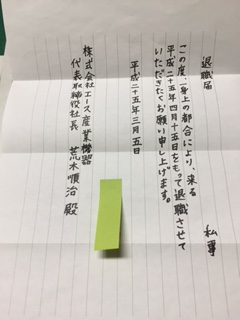 退職届
私事
この度、一身上の都合により、来る
平成二十五年四月十五日をもって退職させて
いただきたくお願い申し上げます。
平成二十五年三月五日
株式会社エース産業機器
代表取締役社長 荒木順治 殿